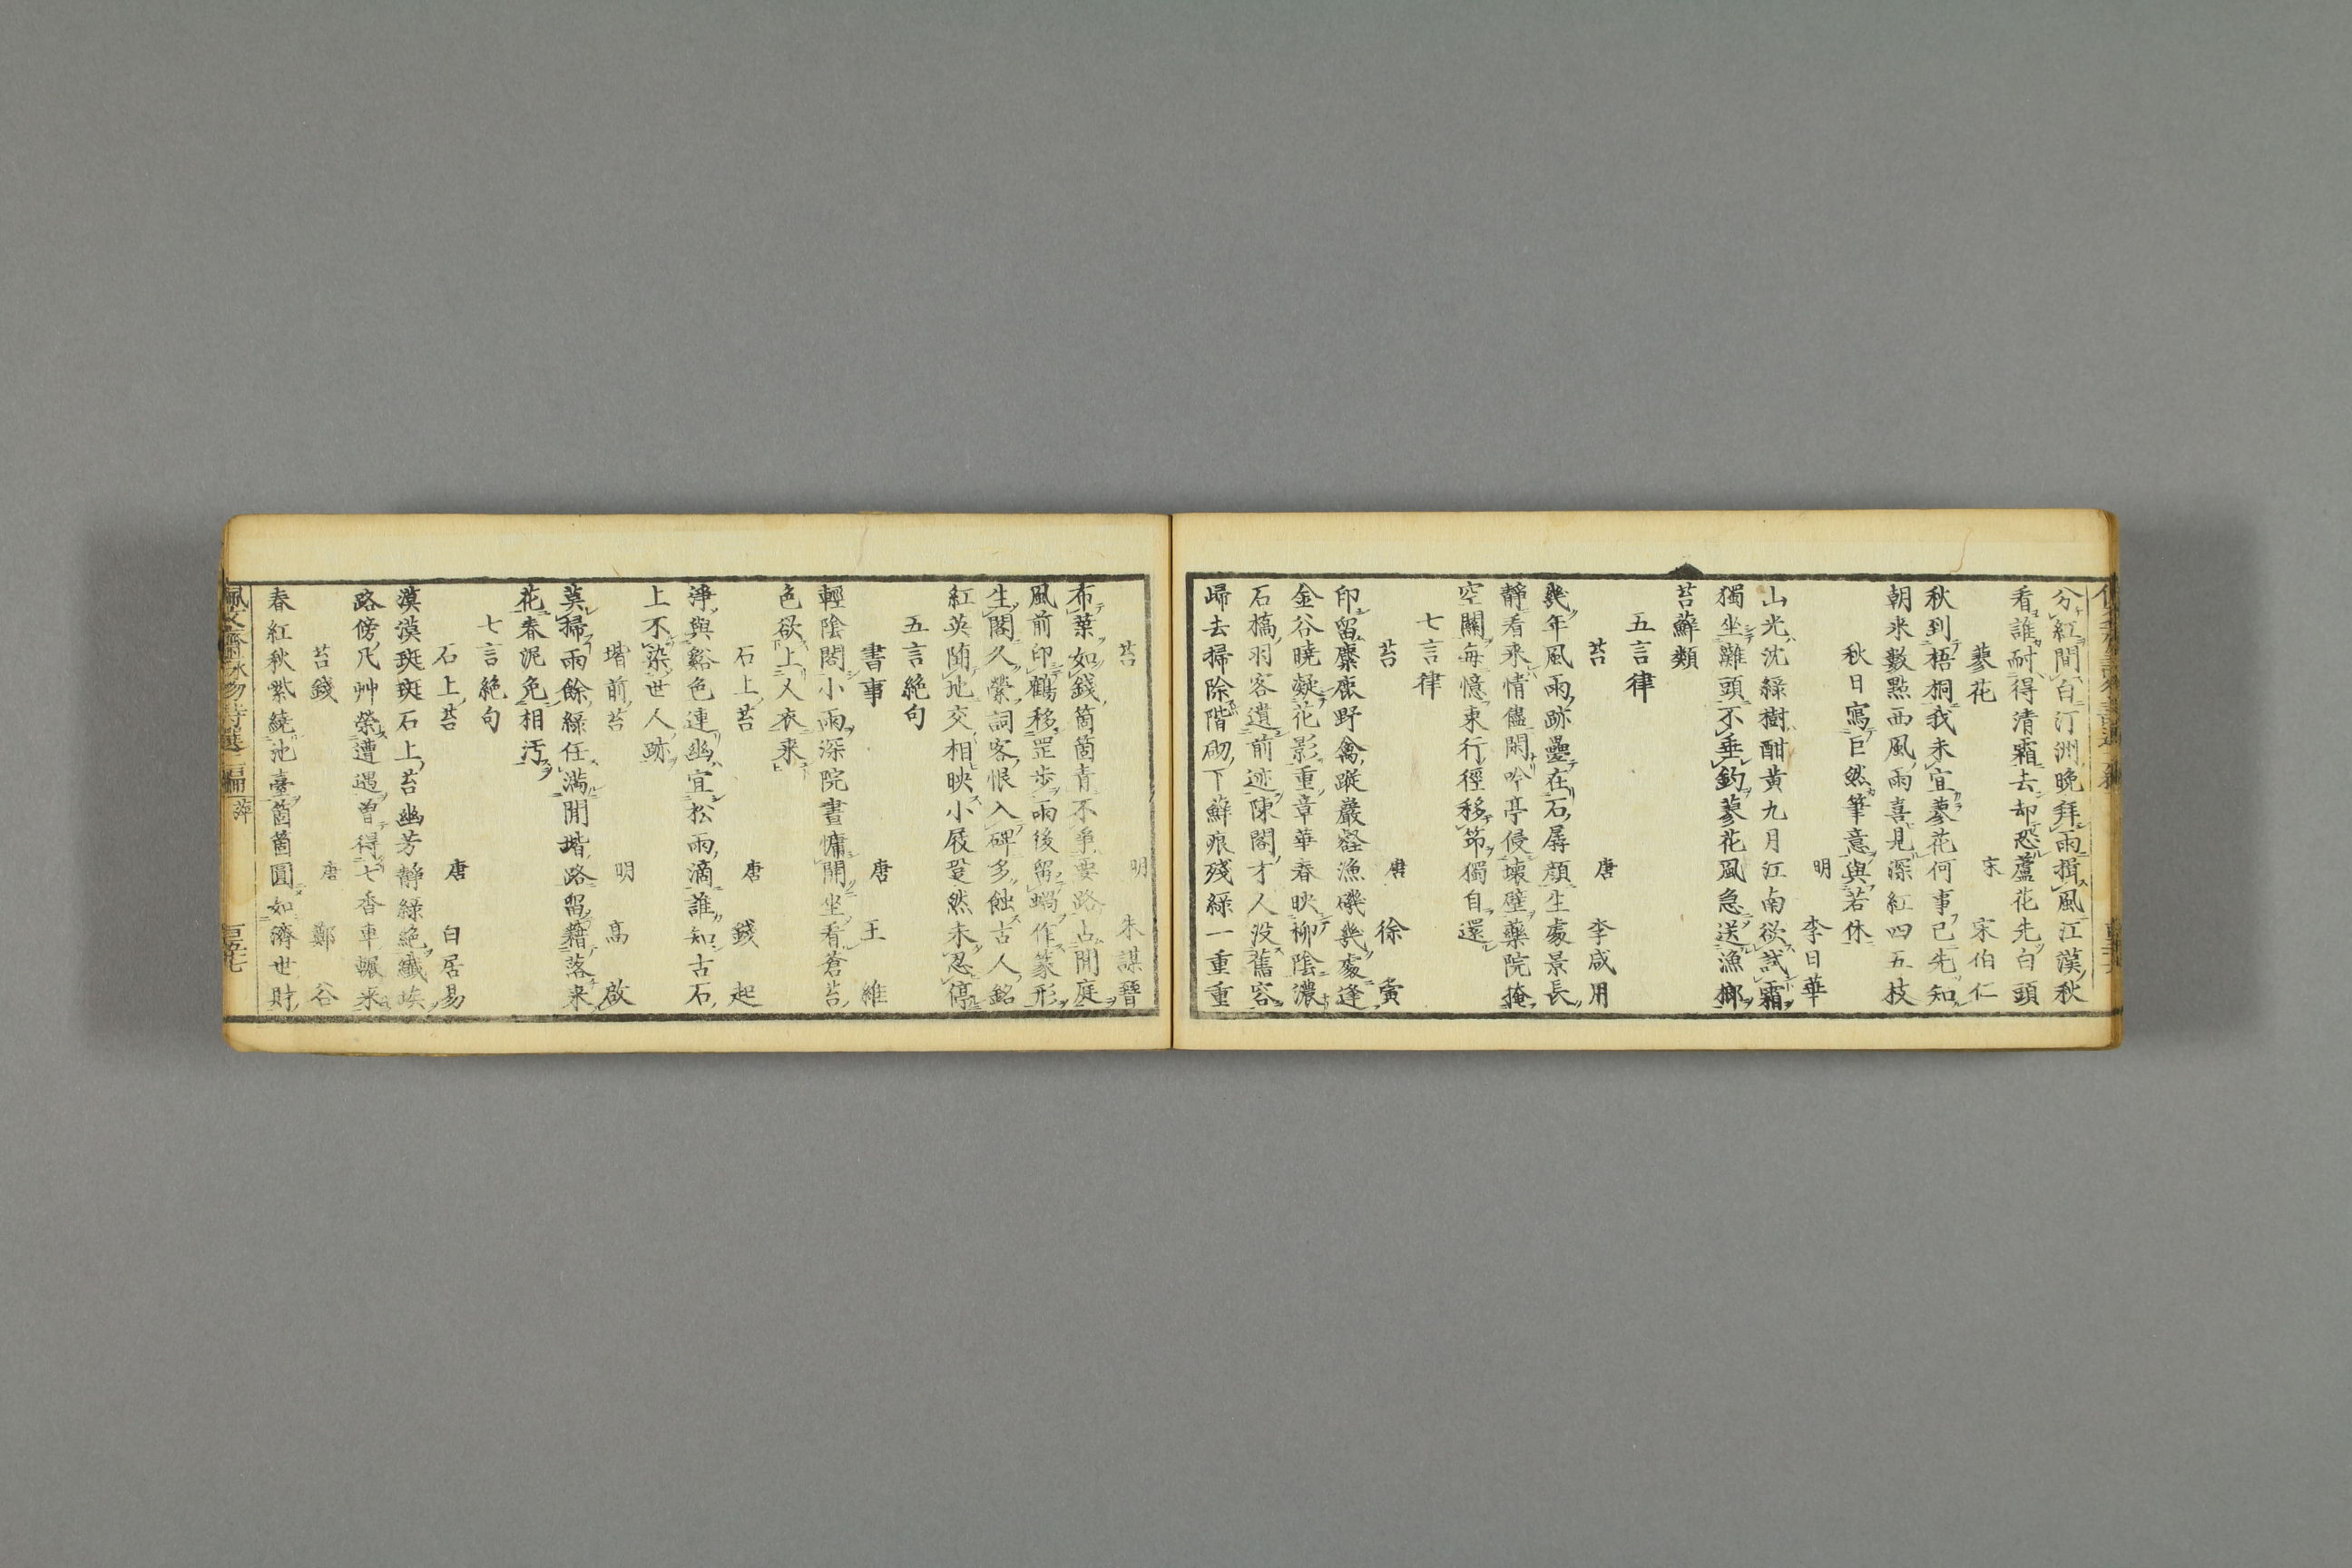 分紅間白汀洲晩拜雨揖風江漢秋
看誰耐得清霜去却恐蘆花先白頭
蓼花 宋 宋伯仁
秋到梧桐我未宜蓼花何事已先知
朝來數點西風雨喜見深紅四五枝
秋日寫巨然筆意與若休
明 李日華
山光沈緑樹酣黄九月江南欲試霜
獨坐灘頭不垂釣蓼花風急送漁榔
苔蘚類
五言律
苔 唐 李咸用
幾年風雨跡疊在石孱顔生處景長
靜看來情儘閑吟亭侵壞壁藥院掩
空關毎憶東行徑移筇獨自還
七言律
苔 唐 徐寅
印留麋鹿野禽蹤巖壑漁磯幾處逢
金谷曉凝花影重章華春映柳陰濃
石橋羽客遺前迹陳閣才人没舊容
歸去掃除階砌下蘚痕殘緑一重重
苔 明 朱謀㬜
布葉如錢箇箇青不爭要路占閒庭
風前印鶴移罡歩雨後留蝸作篆形
生閣久縈詞客恨入碑多蝕古人銘
紅英随地交相映小屐跫然未忍停
五言絶句
書事 唐 王維
輕陰閣小雨深院晝慵開坐看蒼苔
色欲上人衣來
石上苔 唐 錢起
淨與谿色連幽宜松雨滴誰知古石
上不染世人跡
堦前苔 明 高啟
莫掃雨餘緑任満閒堦路留藉落来
花春泥免相汚
七言絶句
石上苔 唐 白居易
漠漠斑斑石上苔幽芳静緑絶纎埃
路傍凡艸榮遭遇曽得七香車輾来
苔錢 唐 鄭谷
春紅秋紫繞池臺箇箇圓如濟世財
佩文齋詠物詩選二編 萍 百五十七